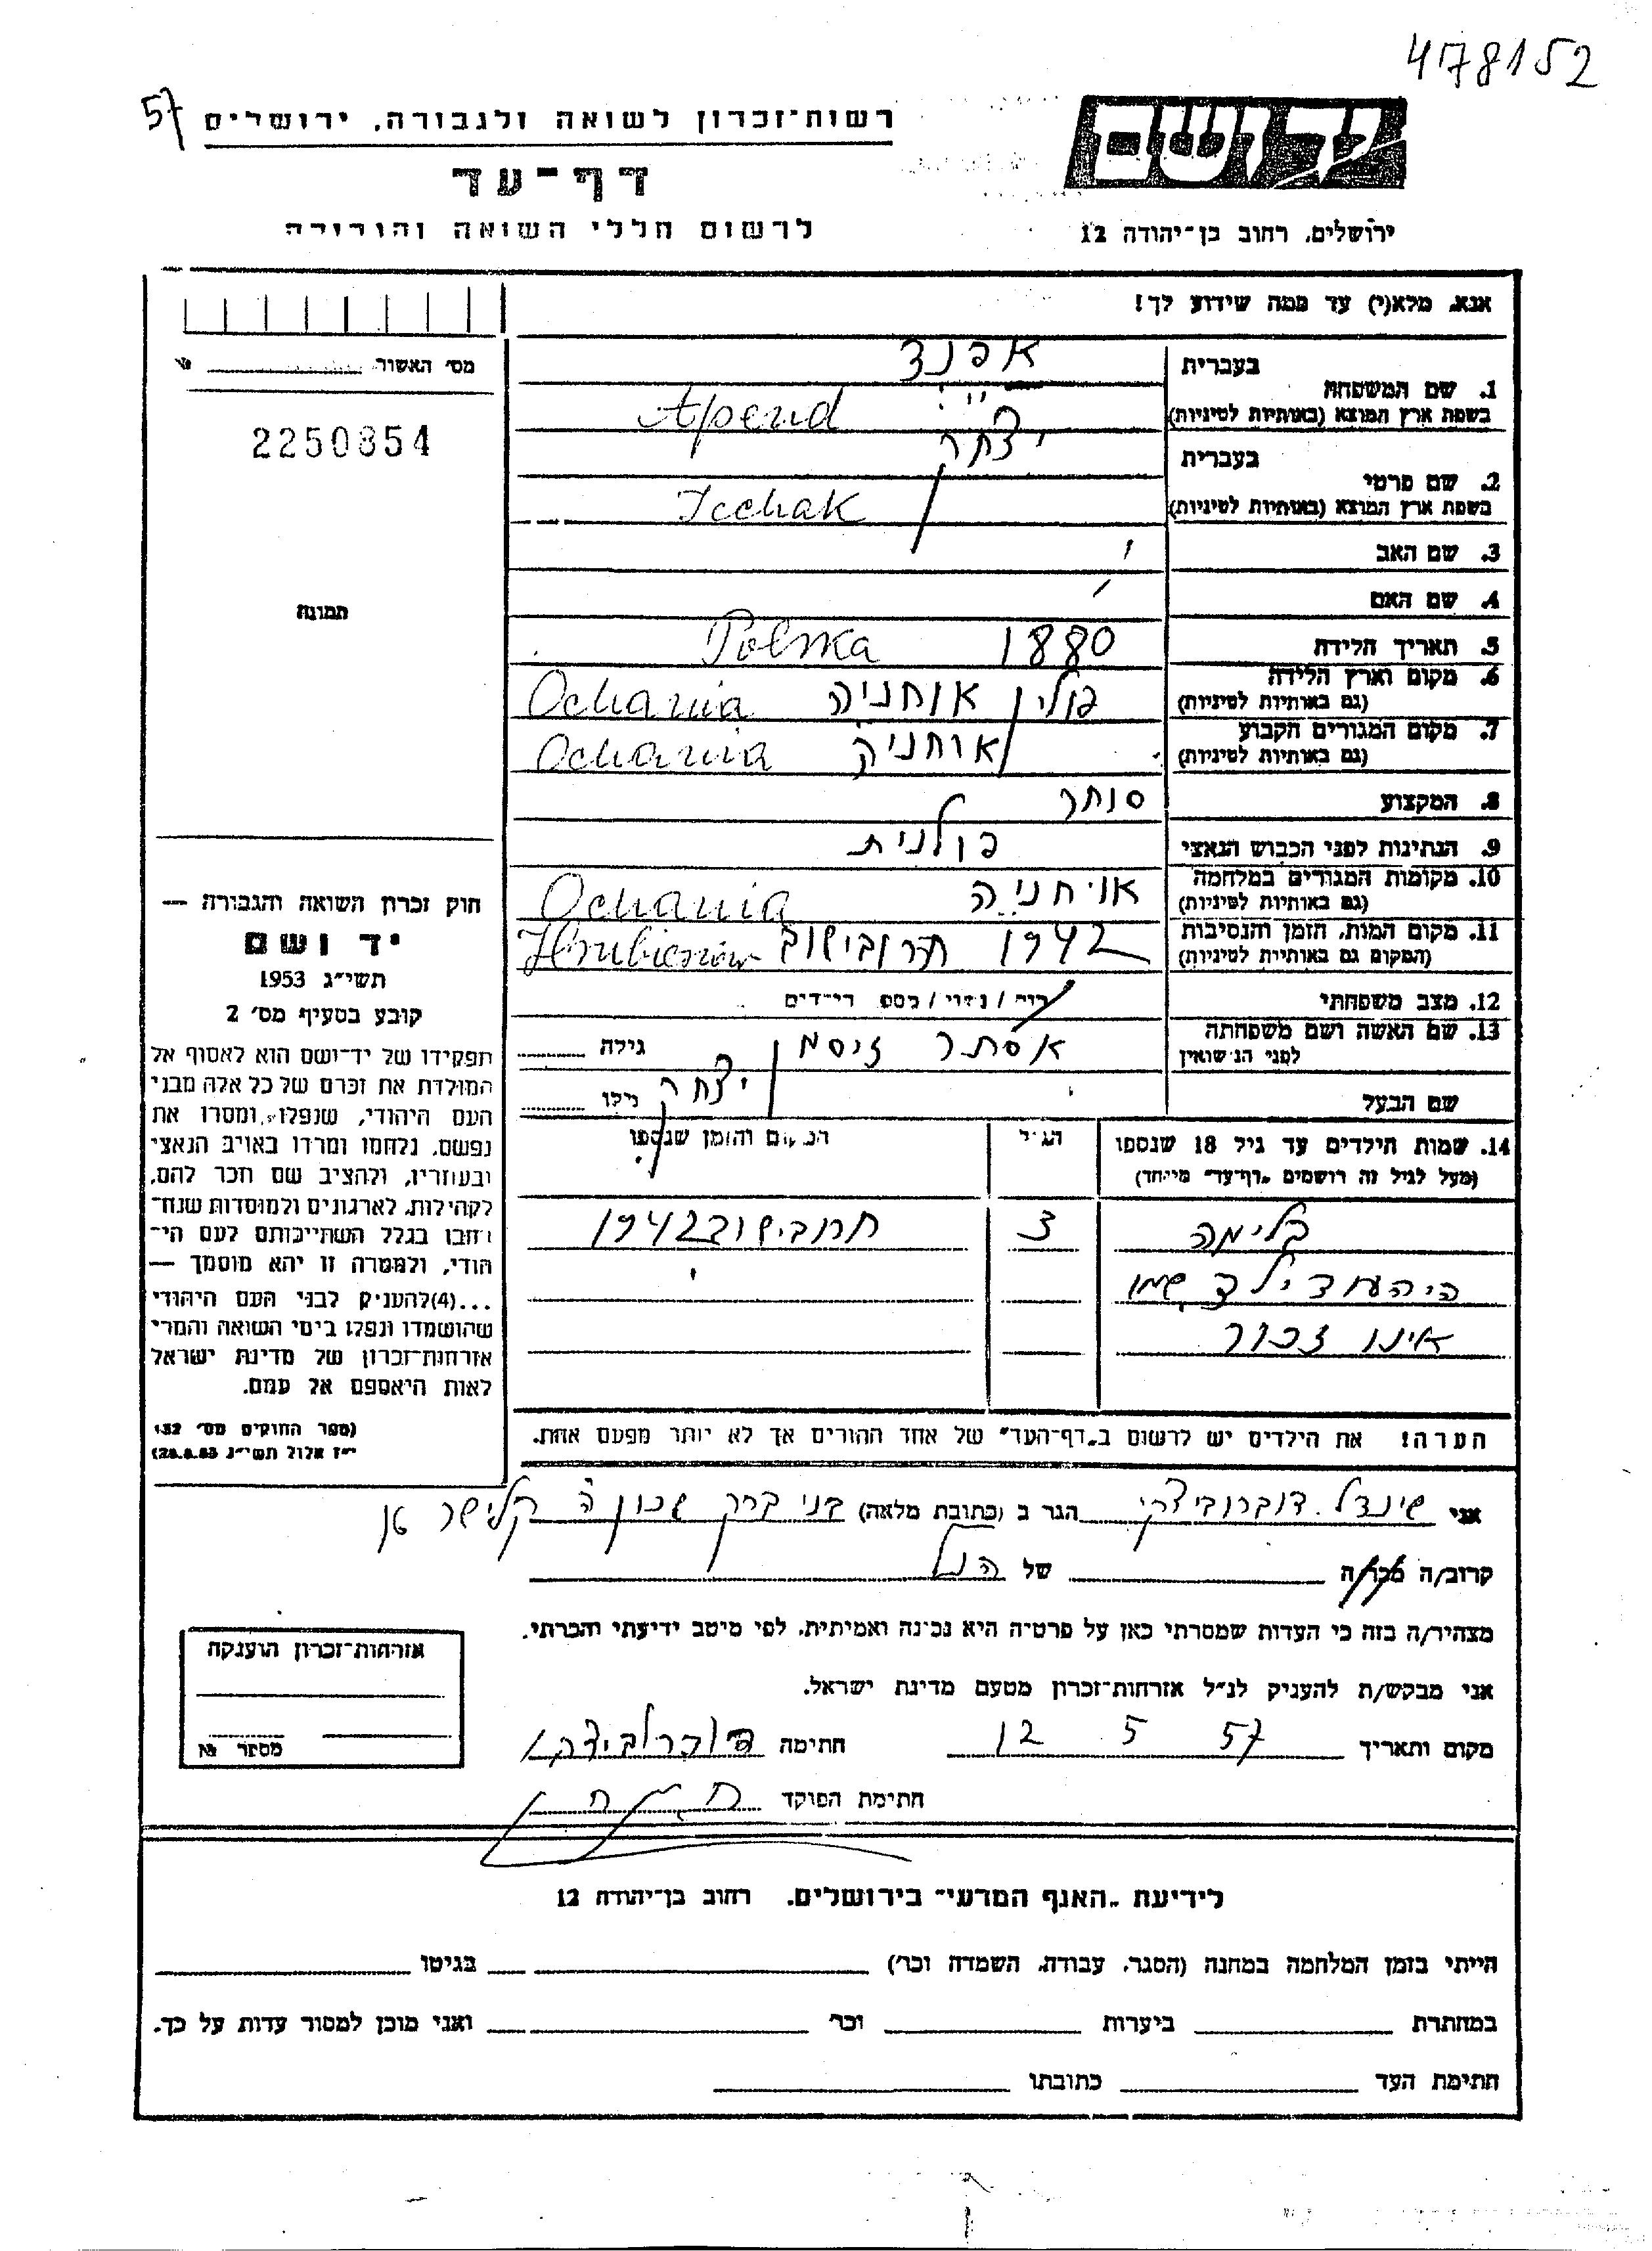 478152
57
רשות־זכרון לשואה ולגבורה, ירושלים
דף־עד
לרשום חללי השואה והגבורה
יד ושם
ירושלים, רחוב בן־יהודה 12
אנא, מלא(י) עד כמה שידוע לך!
1. שם המשפחה
בעברית
אפנד
בשפת ארץ המוצא (באותיות לטיניות)
Apend
2. שם פרטי
בעברית
יצחק
בשפת ארץ המוצא (באותיות לטיניות)
Icchak
3. שם האב
4. שם האם
5. תאריך הלידה
1880 Polska
6. מקום וארץ הלידה
(גם באותיות לטיניות)
פולין אוחניה Ochania
7. מקום המגורים הקבוע
(גם באותיות לטיניות)
אוחניה Ochania
8. המקצוע
סוחר
9. הנתינות לפני הכבוש הנאצי
פולנית
10. מקומות המגורים במלחמה
(גם באותיות לטיניות)
אוחניה Ochania
11. מקום המות, הזמן והנסיבות
(המקום גם באותיות לטיניות)
1942 הרובישוב
12. מצב משפחתי
13. שם האשה ושם משפחתה
לפני הנישואין
אסתר זיסמן
גילה
שם הבעל
יצחק
גילו
14. שמות הילדים עד גיל 18 שנספו
(מעל לגיל זה רושמים „דף־עד" מיוחד)
הגיל
המקום והזמן שנספו
בלימה 3 הרובישוב 1942
ילד שמו
אינו זכור
הערה! את הילדים יש לרשום ב„דף־העד" של אחד ההורים אך לא יותר מפעם אחת.
מס׳ האשור №
2250854
תמונה
חוק זכרון השואה והגבורה —
יד ושם
תשי״ג 1953
קובע בסעיף מס׳ 2
תפקידו של יד־ושם הוא לאסוף אל
המולדת את זכרם של כל אלה מבני
העם היהודי, שנפלו, ומסרו את
נפשם, נלחמו ומרדו באויב הנאצי
ובעוזריו, ולהציב שם וזכר להם,
לקהילות, לארגונים ולמוסדות שנח־
רבו בגלל השתייכותם לעם הי־
הודי, ולמטרה זו יהא מוסמך —
...(4) להעניק לבני העם היהודי
שהושמדו ונפלו בימי השואה והמרי
אזרחות־זכרון של מדינת ישראל
לאות היאספם אל עמם.
(ספר החוקים מס׳ 132
י״ז אלול תשי״ג 28.8.53)
אני שינדל דוברוביצקי הגר ב (כתובת מלאה) בני ברק שכון ה
קרוב/ה מכר/ה של הנ״ל
מצהיר/ה בזה כי העדות שמסרתי כאן על פרטיה היא נכונה ואמיתית, לפי מיטב ידיעתי והכרתי.
אני מבקש/ת להעניק לנ״ל אזרחות־זכרון מטעם מדינת ישראל.
מקום ותאריך 12 5 57 חתימה דוברוביצקי
חתימת הפוקד
אזרחות־זכרון הוענקה
מספר №
לידיעת „האגף המדעי" בירושלים, רחוב בן־יהודה 12
הייתי בזמן המלחמה במחנה (הסגר, עבודה, השמדה וכו׳) בגיטו
במחתרת ביערות וכו׳ ואני מוכן למסור עדות על כך.
חתימת העד כתובתו